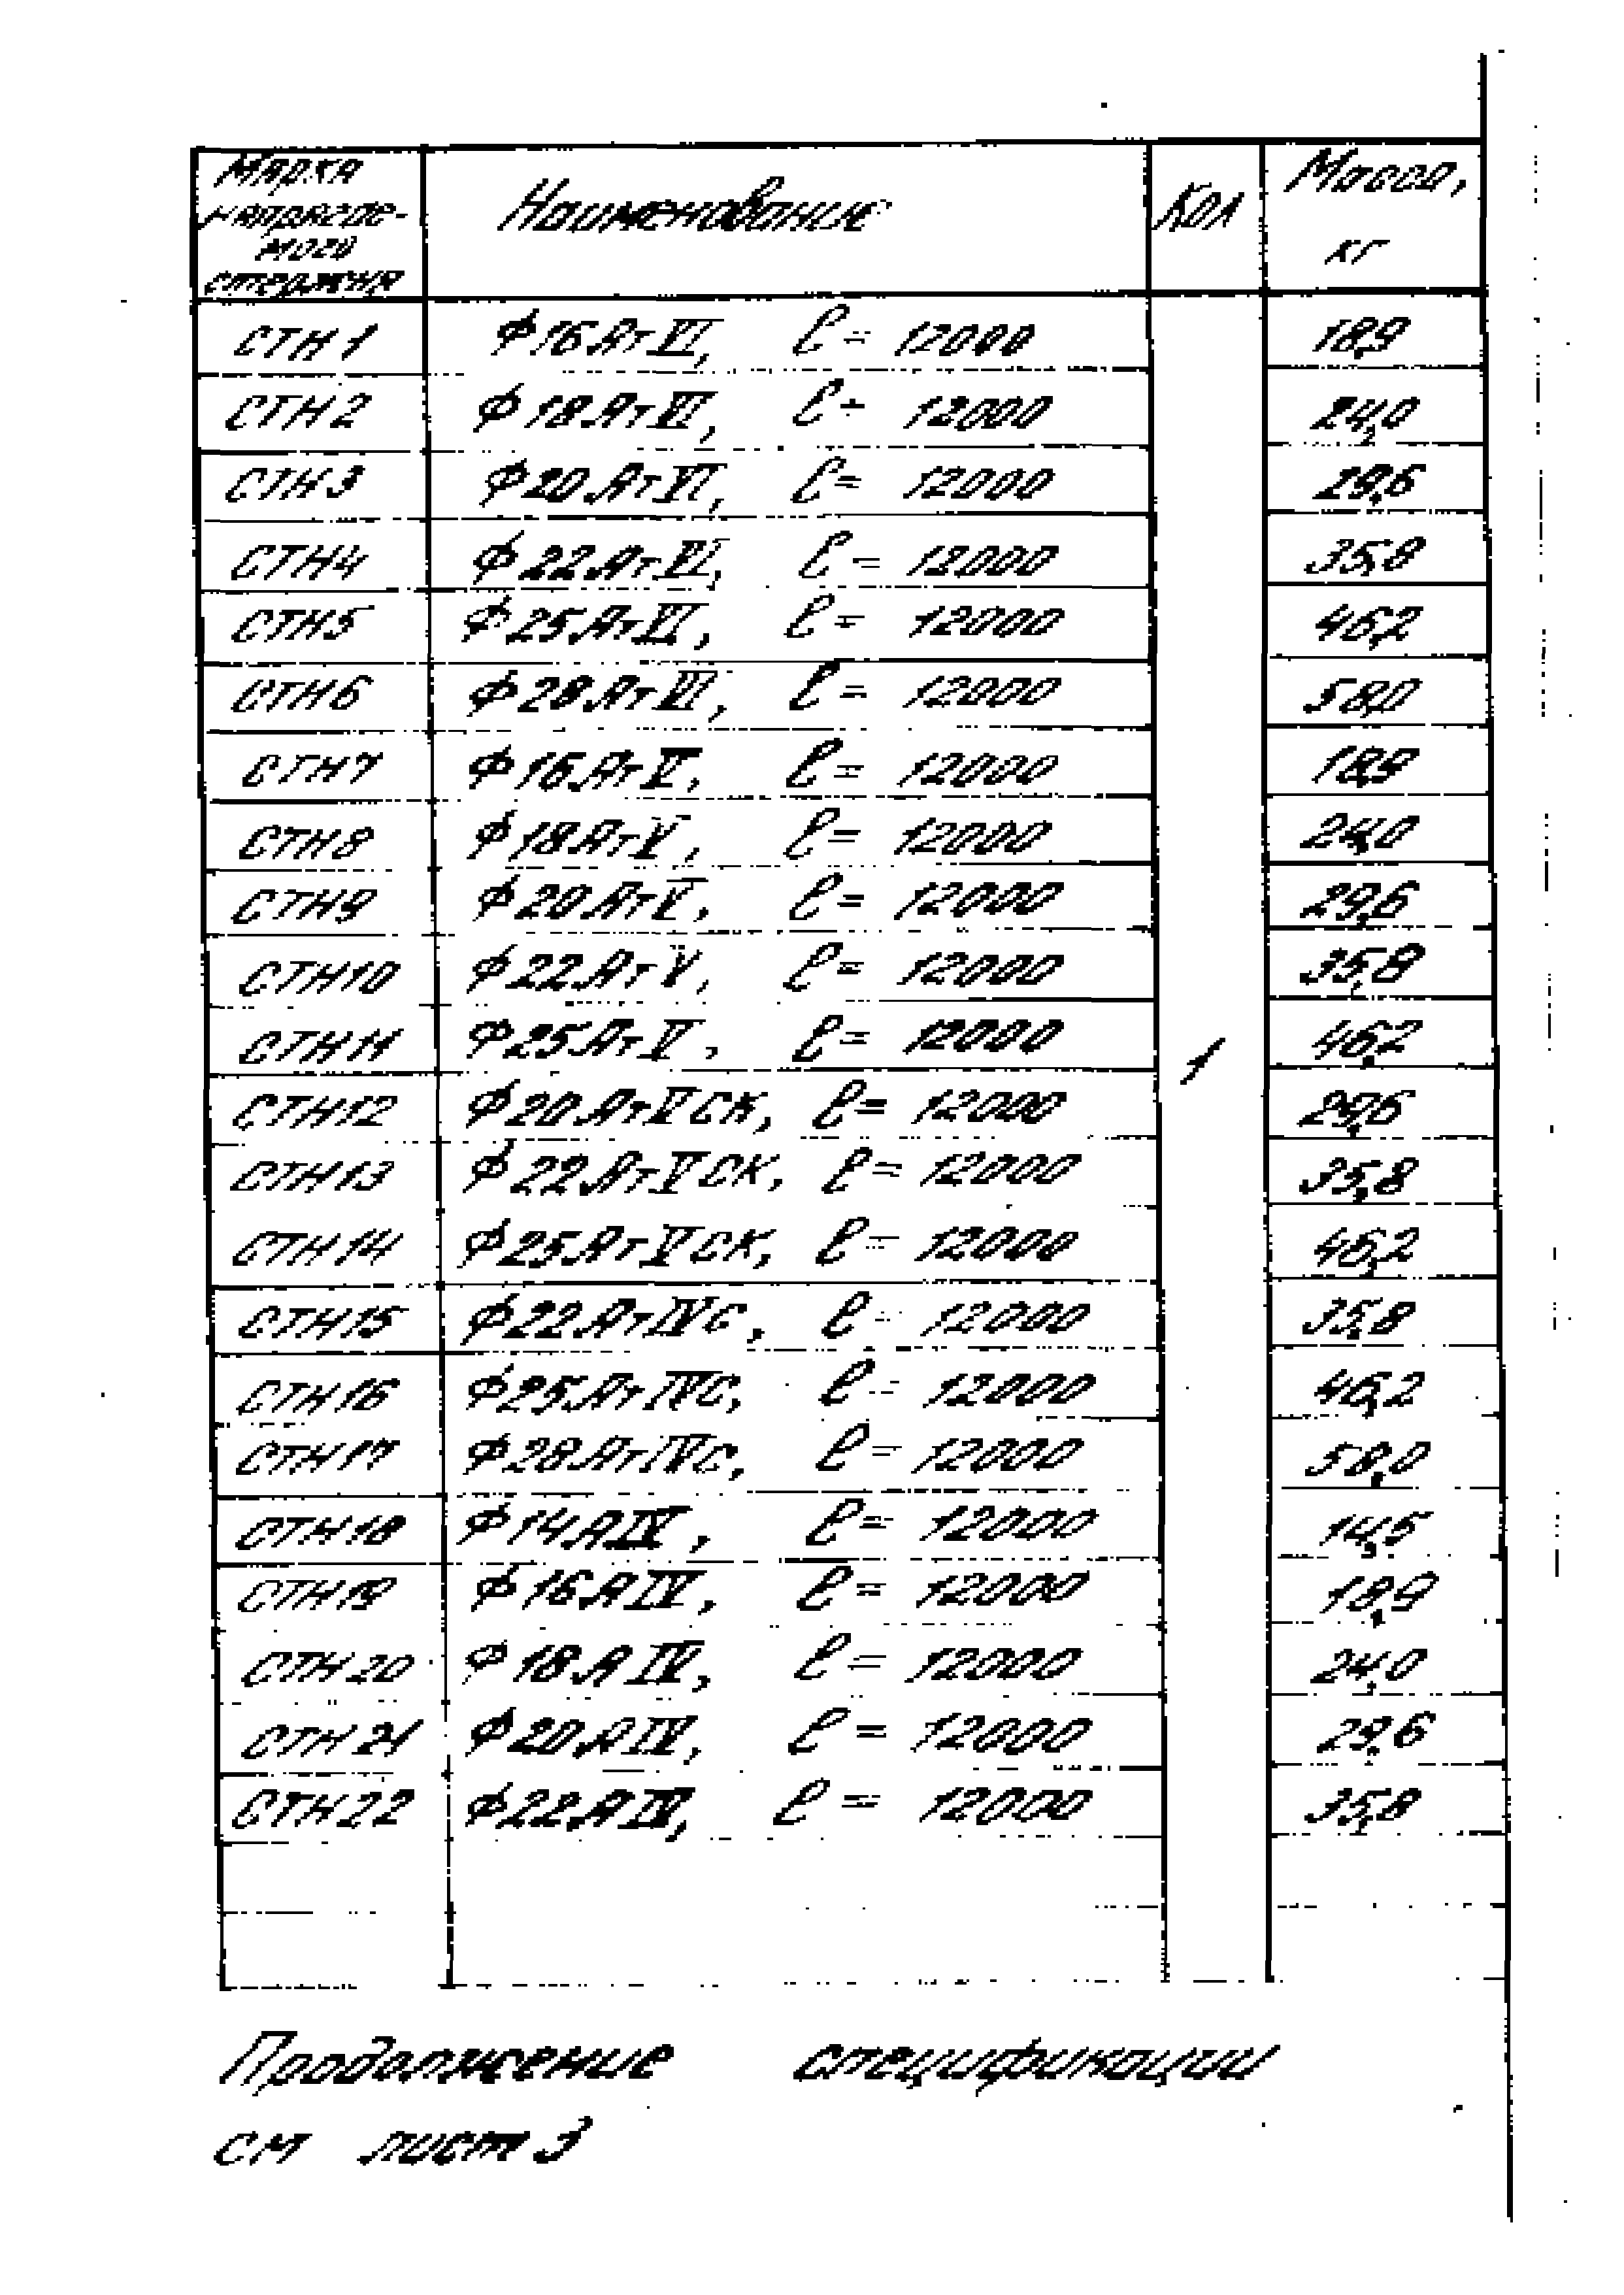 Марка напрягае- мого стержня Наименование Кол Масса, кг
СТН1 Ф16АтVI, ℓ= 12000 18,9
СТН2 Ф18АтVI, ℓ= 12000 24,0
СТН3 Ф20АтVI, ℓ= 12000 29,6
СТН4 Ф22АтVI, ℓ= 12000 35,8
СТН5 Ф25АтVI, ℓ= 12000 46,2
СТН6 Ф28АтVI, ℓ= 12000 58,0
СТН7 Ф16АтV, ℓ= 12000 18,9
СТН8 Ф18АтV, ℓ= 12000 24,0
СТН9 Ф20АтV, ℓ= 12000 29,6
СТН10 Ф22АтV, ℓ= 12000 35,8
СТН11 Ф25АтV, ℓ= 12000 1 46,2
СТН12 Ф20АтVСК, ℓ= 12000 29,6
СТН13 Ф22АтVСК, ℓ= 12000 35,8
СТН14 Ф25АтVСК, ℓ= 12000 46,2
СТН15 Ф22АтIVС, ℓ= 12000 35,8
СТН16 Ф25АтIVС, ℓ= 12000 46,2
СТН17 Ф28АтIVС, ℓ= 12000 58,0
СТН18 Ф14АIV, ℓ= 12000 14,5
СТН19 Ф16АIV, ℓ= 12000 18,9
СТН20 Ф18АIV, ℓ= 12000 24,0
СТН21 Ф20АIV, ℓ= 12000 29,6
СТН22 Ф22АIV, ℓ= 12000 35,8
Продолжение спецификации
см лист 3